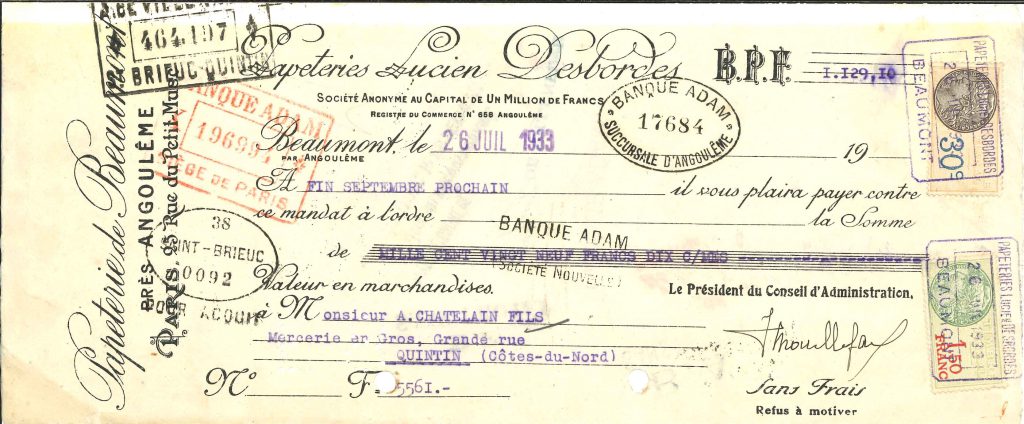 464.197
BRIEUC-QUINTIN
Papeteries Lucien Desbordes
B.P.F. 1.129,10
SOCIÉTÉ ANONYME AU CAPITAL DE UN MILLION DE FRANCS
REGISTRE DU COMMERCE N° 658 ANGOULÊME
Papeterie de Beaumont
PRÈS ANGOULÊME
PARIS. 95 Rue du Petit Musc
BANQUE ADAM
SIÈGE DE PARIS
BANQUE ADAM
17684
SUCCURSALE D'ANGOULÊME
Beaumont, le 26 JUIL 1933 19
PAR ANGOULÊME
A FIN SEPTEMBRE PROCHAIN il vous plaira payer contre
ce mandat à l'ordre la Somme
BANQUE ADAM
(SOCIÉTÉ NOUVELLE)
de MILLE CENT VINGT NEUF FRANCS DIX C/MES
Valeur en marchandises.
38
SAINT-BRIEUC
0092
POUR ACQUIT
Le Président du Conseil d'Administration,
à Monsieur A.CHATELAIN FILS
Mercerie en Gros, Grande rue
QUINTIN (Côtes-du-Nord)
N° F. 5561.-
Sans Frais
Refus à motiver
PAPETERIES LUCIEN DESBORDES
BEAUMONT
30
PAPETERIES LUCIEN DESBORDES
26 JUIL 1933
BEAUMONT
1,50
FRANC